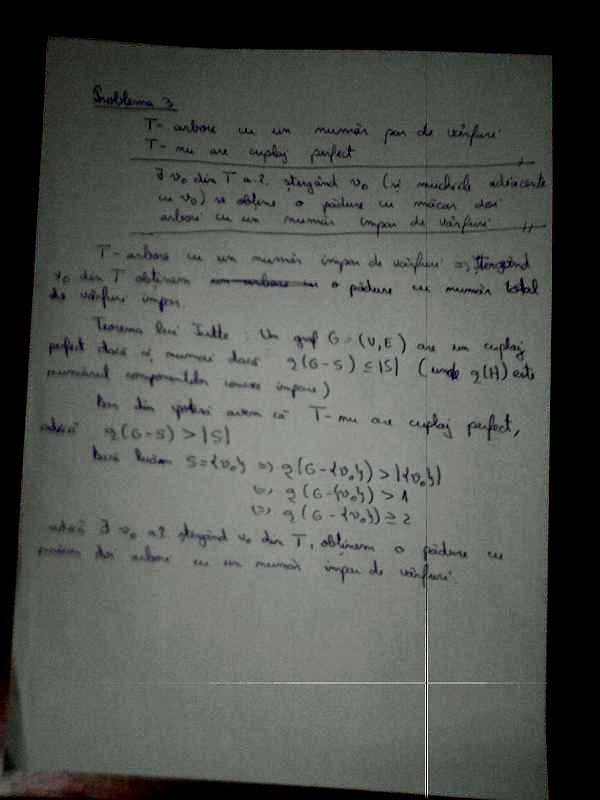 Problema 3
T- arbore cu un număr par de vârfuri
T- nu are cuplaj perfect
∃ v₀ din T a.î. ștergând v₀ (și muchiile adiacente
cu v₀) se obține o pădure cu măcar doi
arbori cu un număr impar de vârfuri
T- arbore cu un număr impar de vârfuri => ștergând
v₀ din T obținem o pădure cu număr total
de vârfuri impar.
Teorema lui Tutte: Un graf G=(V,E) are un cuplaj
perfect dacă și numai dacă q(G-S) ≤ |S| (unde q(H) este
numărul componentelor conexe impare)
Dar din ipoteză avem că T- nu are cuplaj perfect,
adică q(G-S) > |S|
Dacă luăm S={v₀} => q(G-{v₀}) > |{v₀}|
(=) q(G-{v₀}) > 1
(=) q(G-{v₀}) ≥ 2
adică ∃ v₀ a.î. ștergând v₀ din T, obținem o pădure cu
măcar doi arbori cu un număr impar de vârfuri.